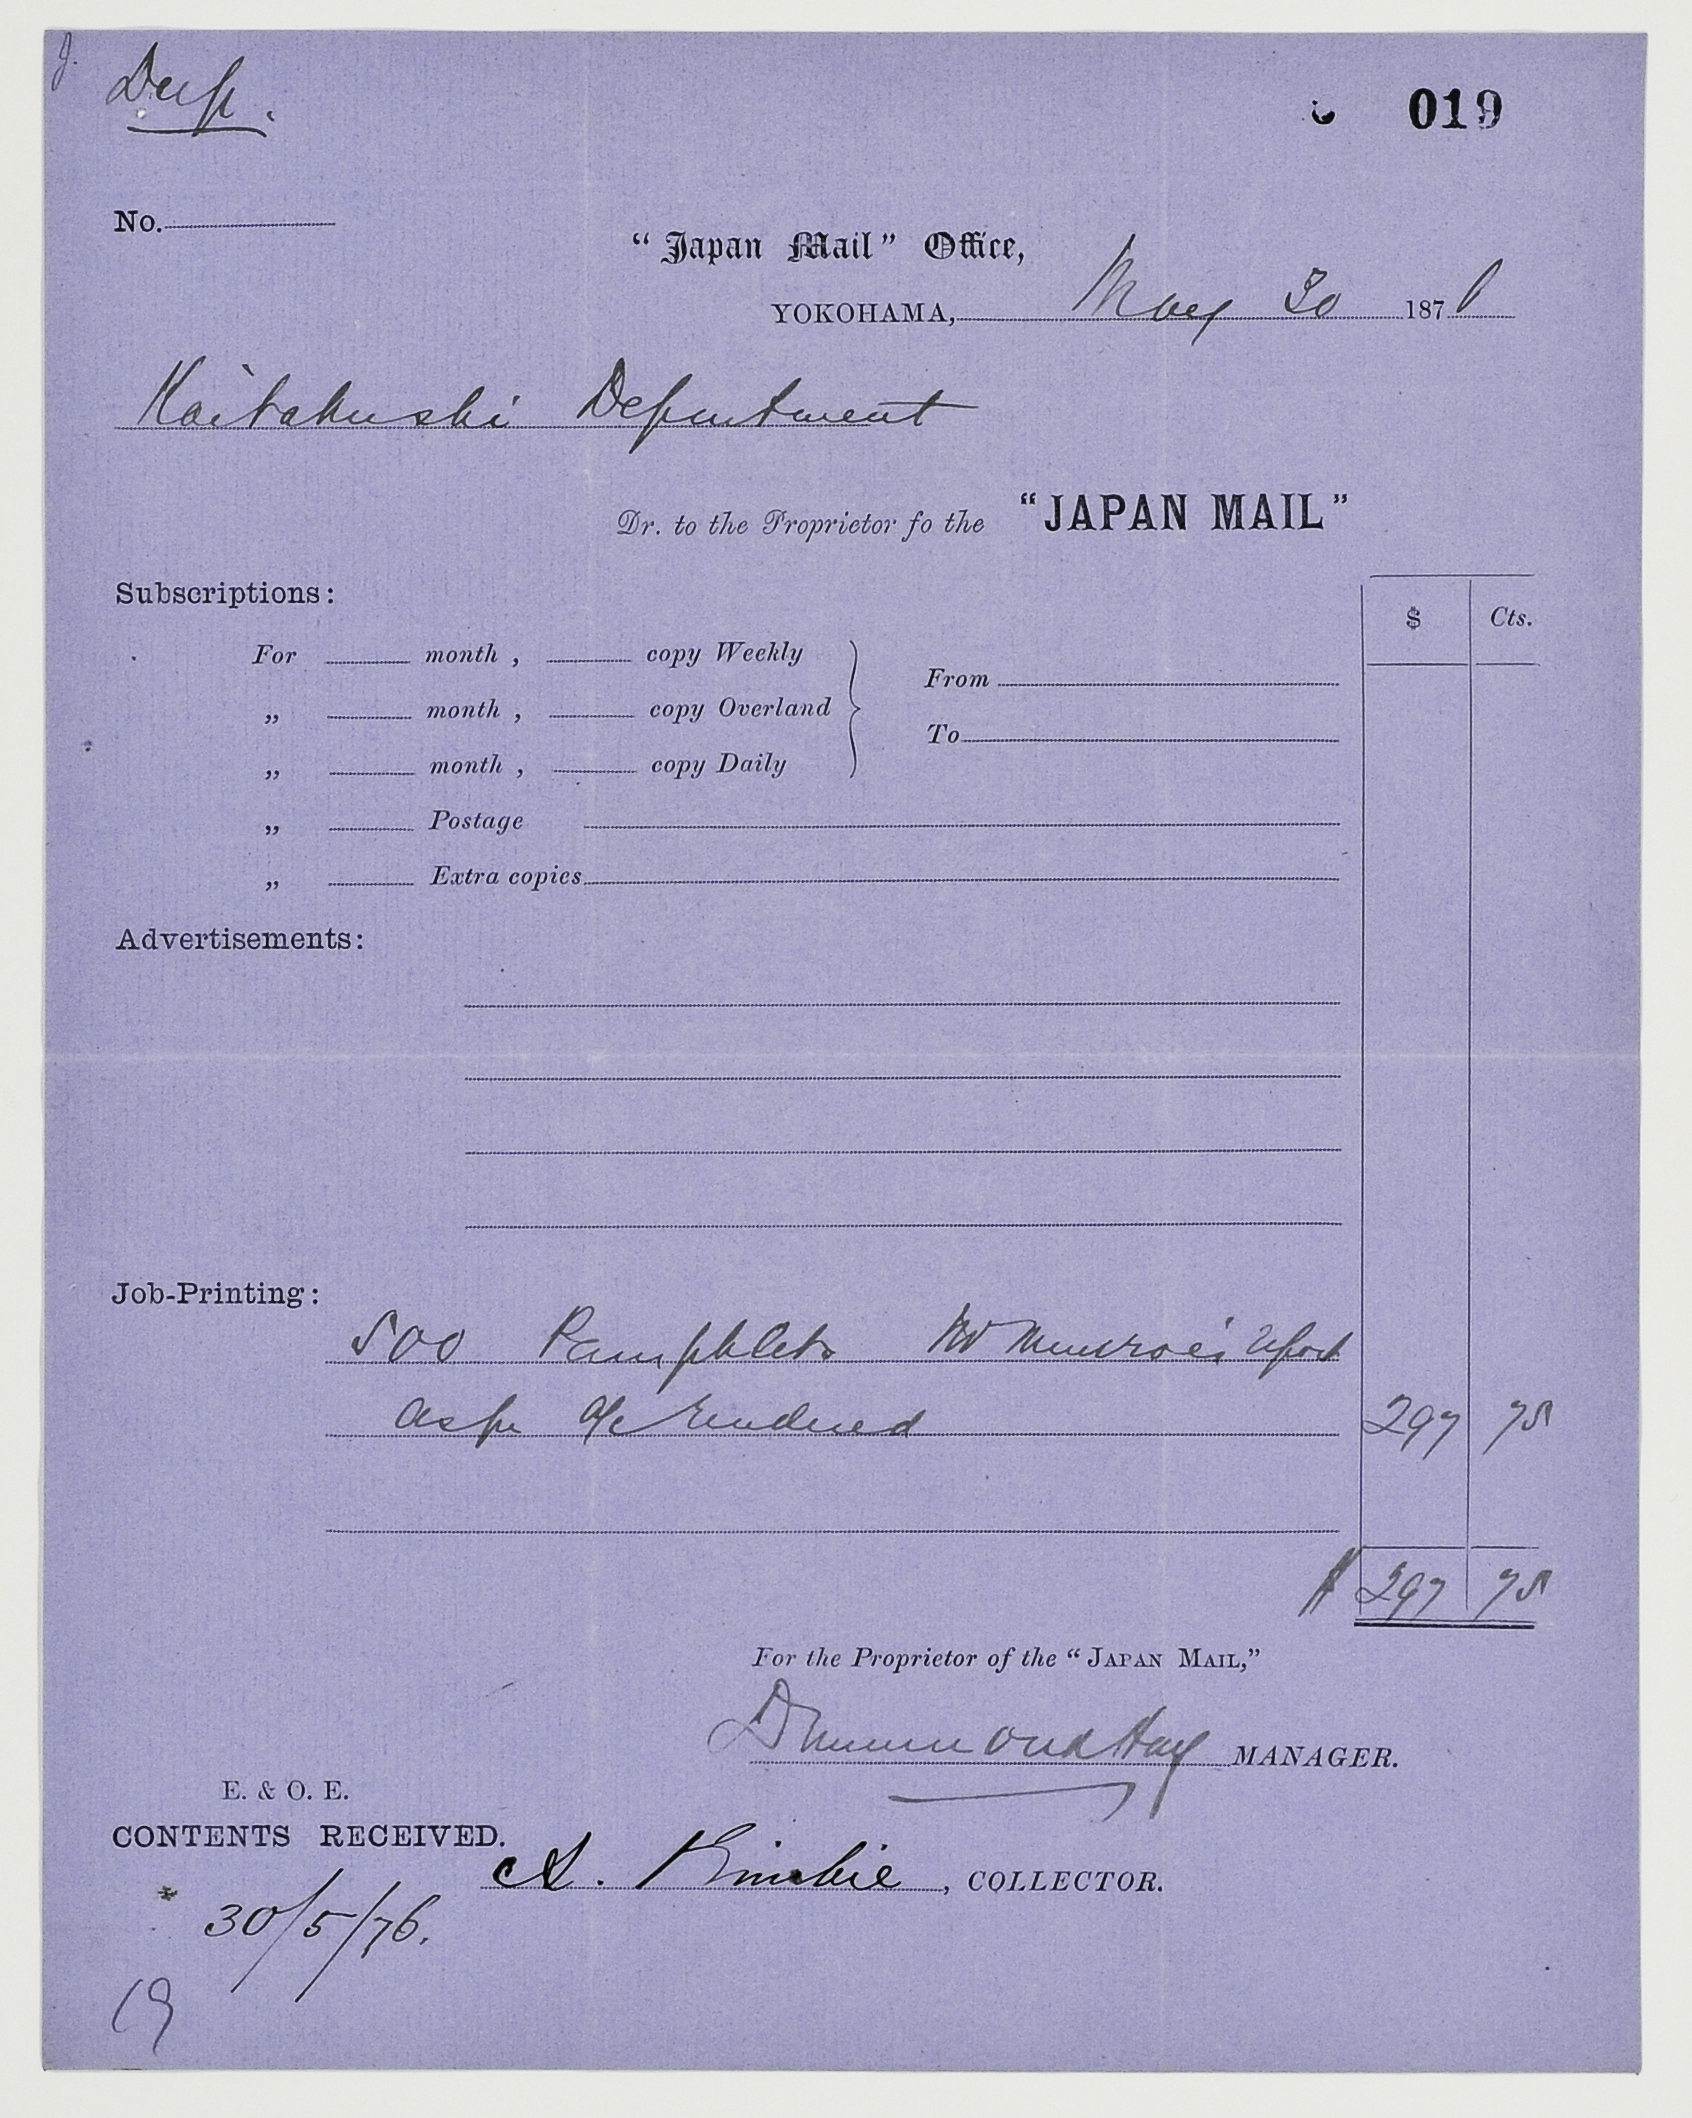 Dup.
019
No.
“Japan Mail” Office,
YOKOHAMA, May 30 1876
Kaitakushi Department
Dr. to the Proprietor fo the “JAPAN MAIL”
Subscriptions:
$ Cts.
For month, copy Weekly
From
„ month, copy Overland
To
„ month, copy Daily
„ Postage
„ Extra copies
Advertisements:
Job-Printing:
500 Pamphlets Mr Munroe's report
as per a/c rendered 297 75
$ 297 75
For the Proprietor of the “JAPAN MAIL,”
Drummond Hay MANAGER.
E. & O. E.
CONTENTS RECEIVED.
A. , COLLECTOR.
30/5/76.